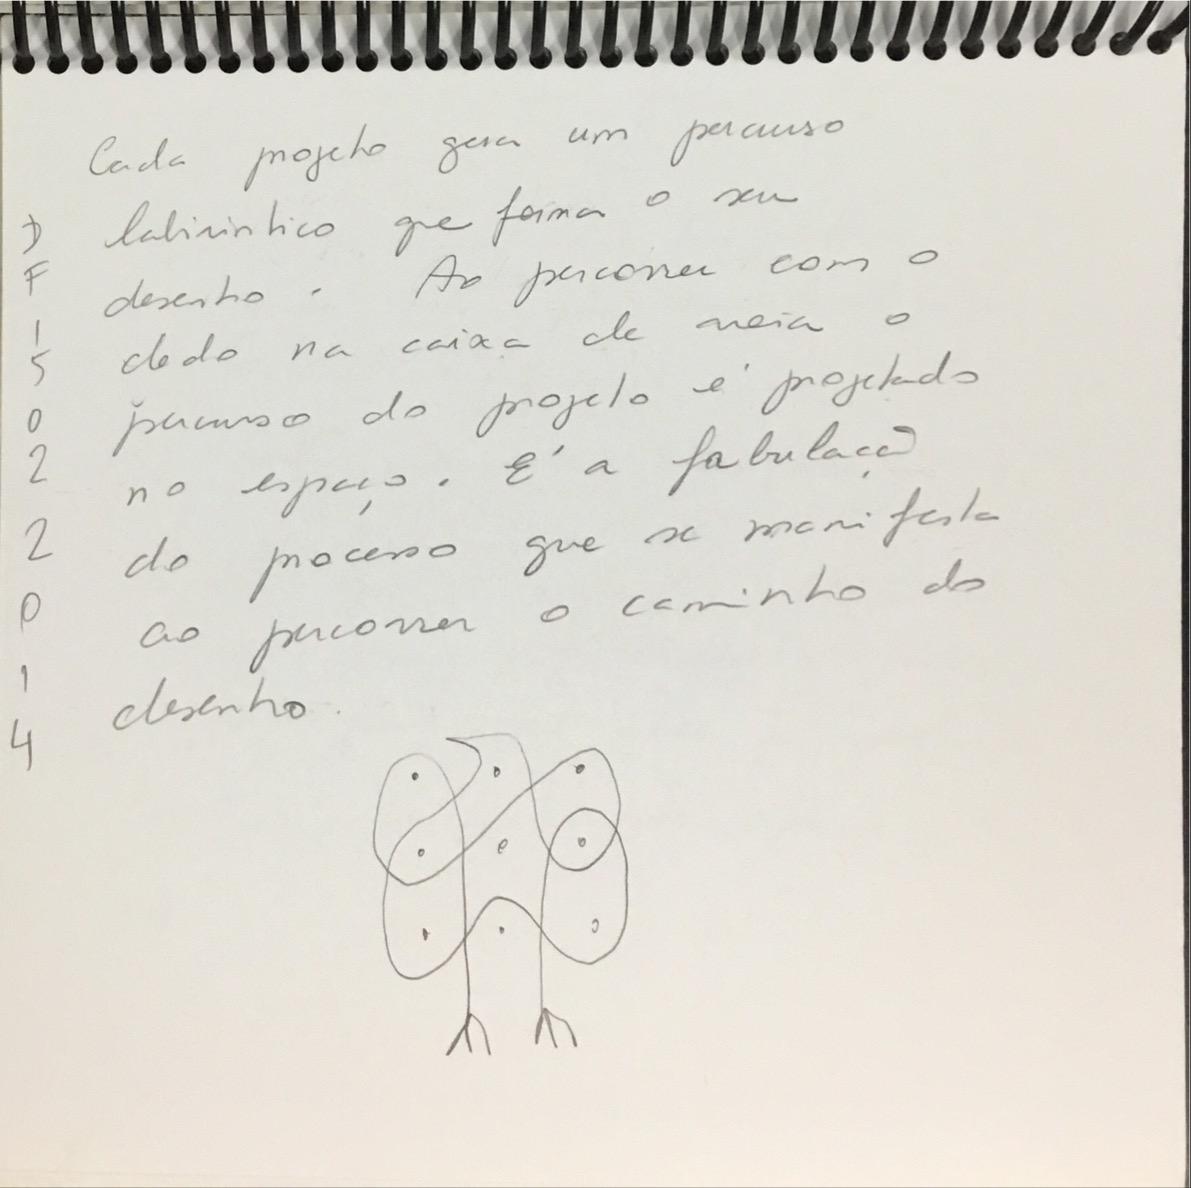 Cada projeto gera um percurso
labiríntico que forma o seu
desenho. Ao percorrer com o
dedo na caixa de areia o
percurso do projeto é projetado
no espaço. É a fabulação
do processo que se manifesta
ao percorrer o caminho do
desenho.
D
F
1
5
0
2
2
0
1
4